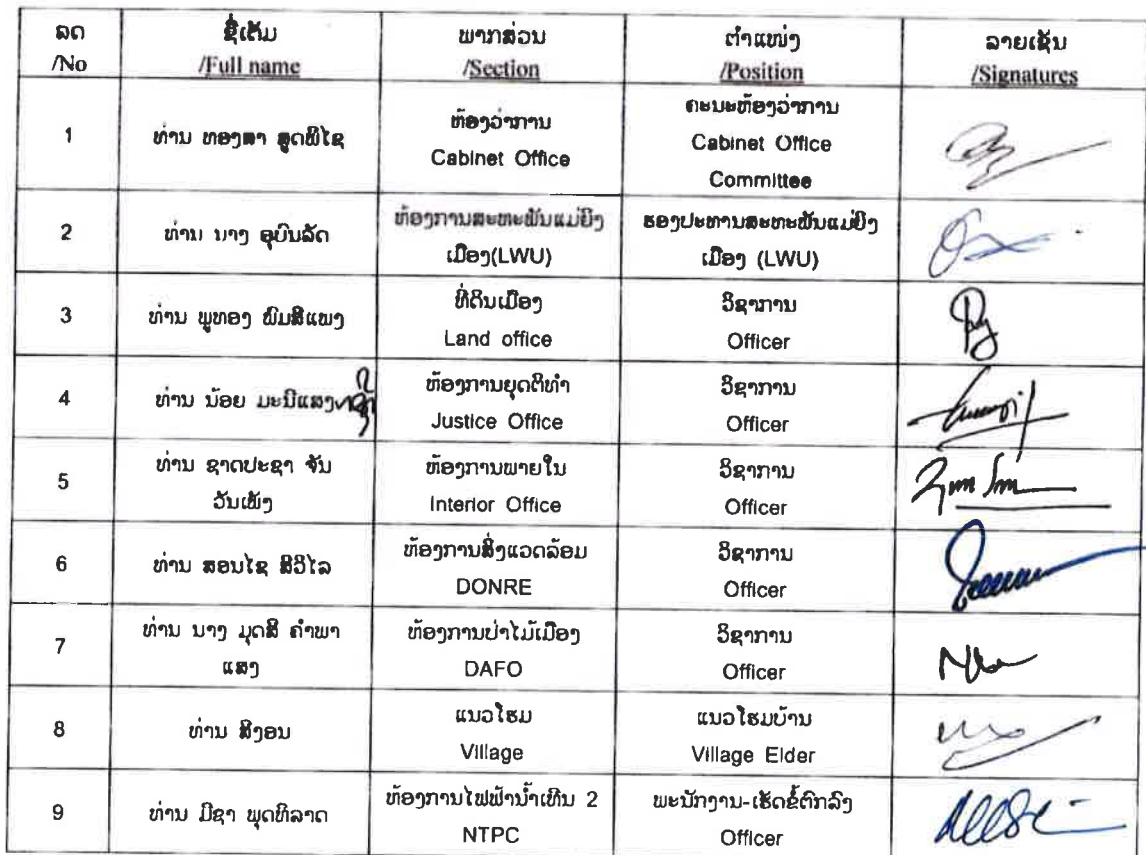 ລດ
/No
ຊື່ເຕັມ
/Full name
ພາກສ່ວນ
/Section
ຕໍາແໜ່ງ
/Position
ລາຍເຊັນ
/Signatures
1
ທ່ານ ທອງສາ ສຸດພິໄຊ
ຫ້ອງວ່າການ
Cabinet Office
ຄະນະຫ້ອງວ່າການ
Cabinet Office
Committee
2
ທ່ານ ນາງ ອຸບົນລັດ
ຫ້ອງການສະຫະພັນແມ່ຍິງ
ເມືອງ(LWU)
ຮອງປະທານສະຫະພັນແມ່ຍິງ
ເມືອງ (LWU)
3
ທ່ານ ພູທອງ ພົມສີແພງ
ທີ່ດິນເມືອງ
Land office
ວິຊາການ
Officer
4
ທ່ານ ນ້ອຍ ມະນີແສງ
ຫ້ອງການຍຸດຕິທໍາ
Justice Office
ວິຊາການ
Officer
5
ທ່ານ ຊາດປະຊາ ຈັນ
ວັນເພັງ
ຫ້ອງການພາຍໃນ
Interior Office
ວິຊາການ
Officer
6
ທ່ານ ສອນໄຊ ສີວິໄລ
ຫ້ອງການສິ່ງແວດລ້ອມ
DONRE
ວິຊາການ
Officer
7
ທ່ານ ນາງ ມຸດສີ ຄໍາພາ
ແສງ
ຫ້ອງການປ່າໄມ້ເມືອງ
DAFO
ວິຊາການ
Officer
8
ທ່ານ ສີງອນ
ແນວໂຮມ
Village
ແນວໂຮມບ້ານ
Village Elder
9
ທ່ານ ມີຊາ ພຸດທິລາດ
ຫ້ອງການໄຟຟ້ານໍ້າເທີນ 2
NTPC
ພະນັກງານ-ເຮັດຂໍ້ຕົກລົງ
Officer